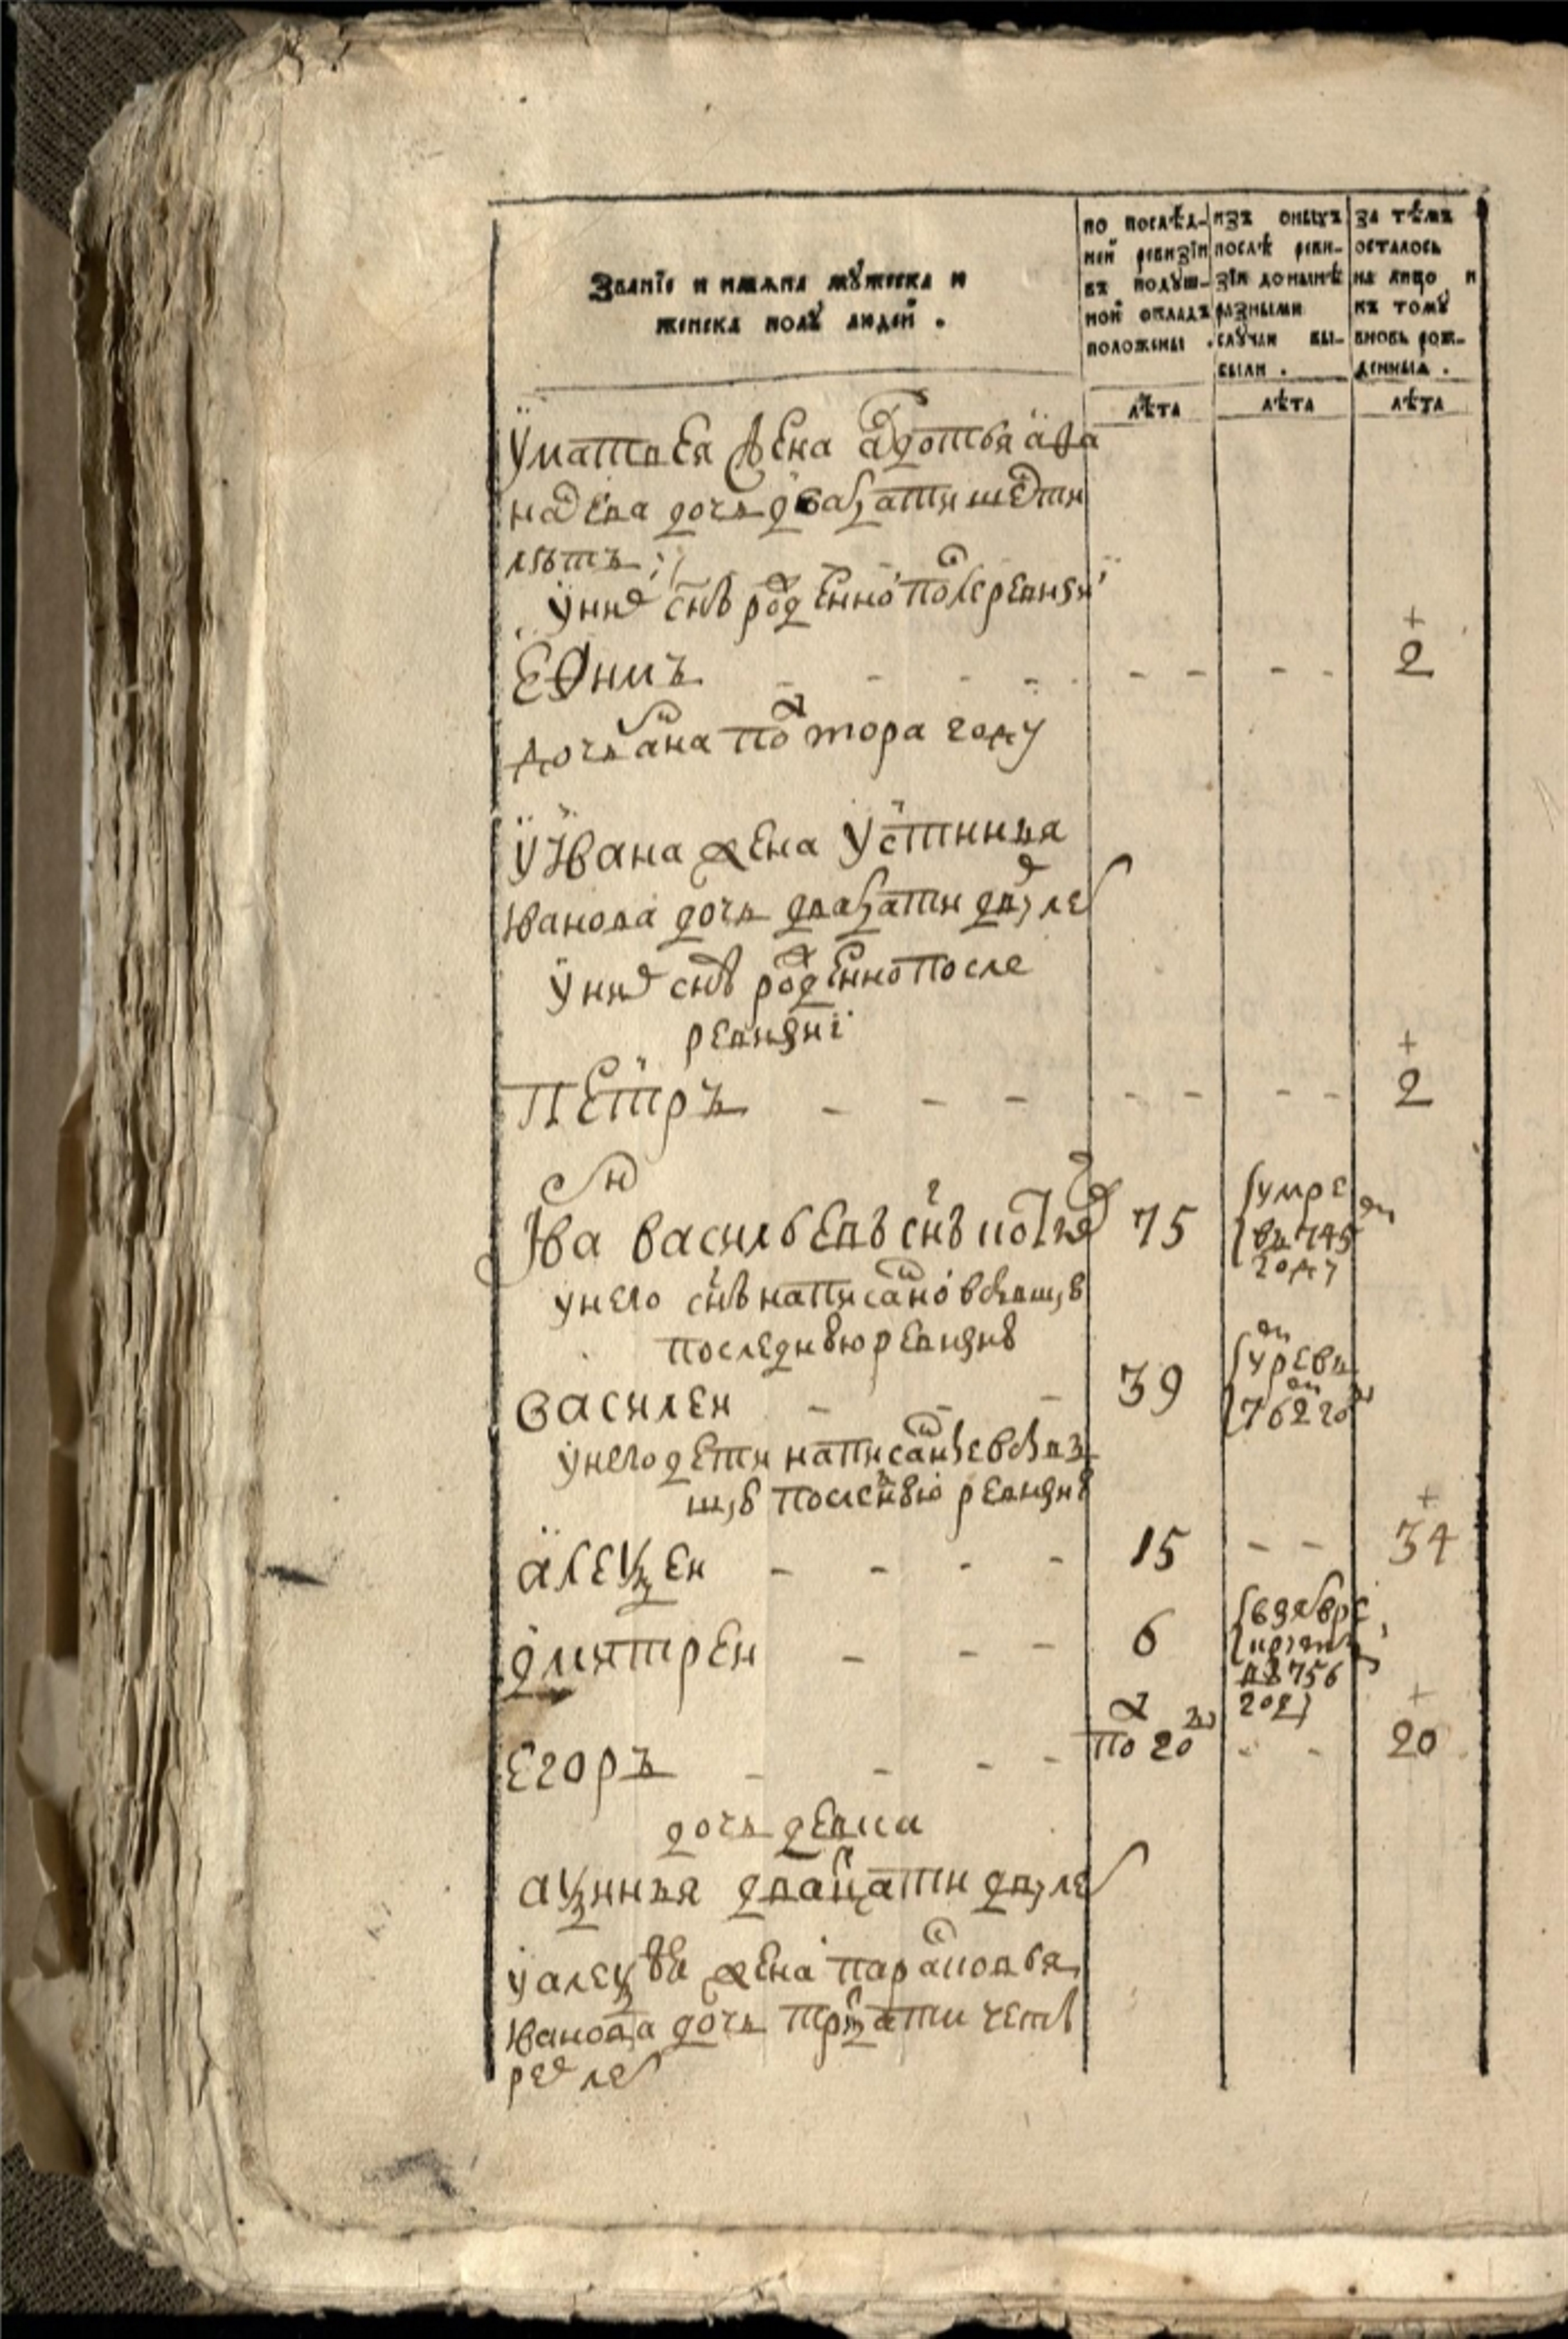 Званїе и имѧна мꙋжеска и
женска полꙋ людей .
по послѣд-
ней ревизїи
въ подꙋш-
ной окладъ
положены .
изъ оныхъ
послѣ реви-
зїи донынѣ
разными
слꙋчаи вы-
были .
за тѣмъ
осталось
на лицо и
къ томꙋ
вновь рож-
денныѧ .
лѣта
лѣта
лѣта
у матвея жена авдотья афа
насева дочь дватцати шести
лѣтъ
у них снъ рожденной после ревизи
Ефимъ - - - - - - - - 2
дочь анна полтора году
у Ивана жена устинья
Иванова дочь дватцати дву лет
у них снъ рожденной после
ревизиі
Петръ - - - - - - - 2
Иван васильевъ снъ 75 умре
в 745
году
у него снъ написанной в бывшую
последнюю ревизию
василеи - - - 39 умре в
762 году
у него дети написанные в быв
шую последнюю ревизию
алексеи - - - - 15 - - 34
дмитреи - - - 6
756
году
Егоръ - - - - пол году - - 20
дочь девка
аксинья дватцати дву лет
у алексея жена парасковья
Иванова дочь тритцати четы
рех лет